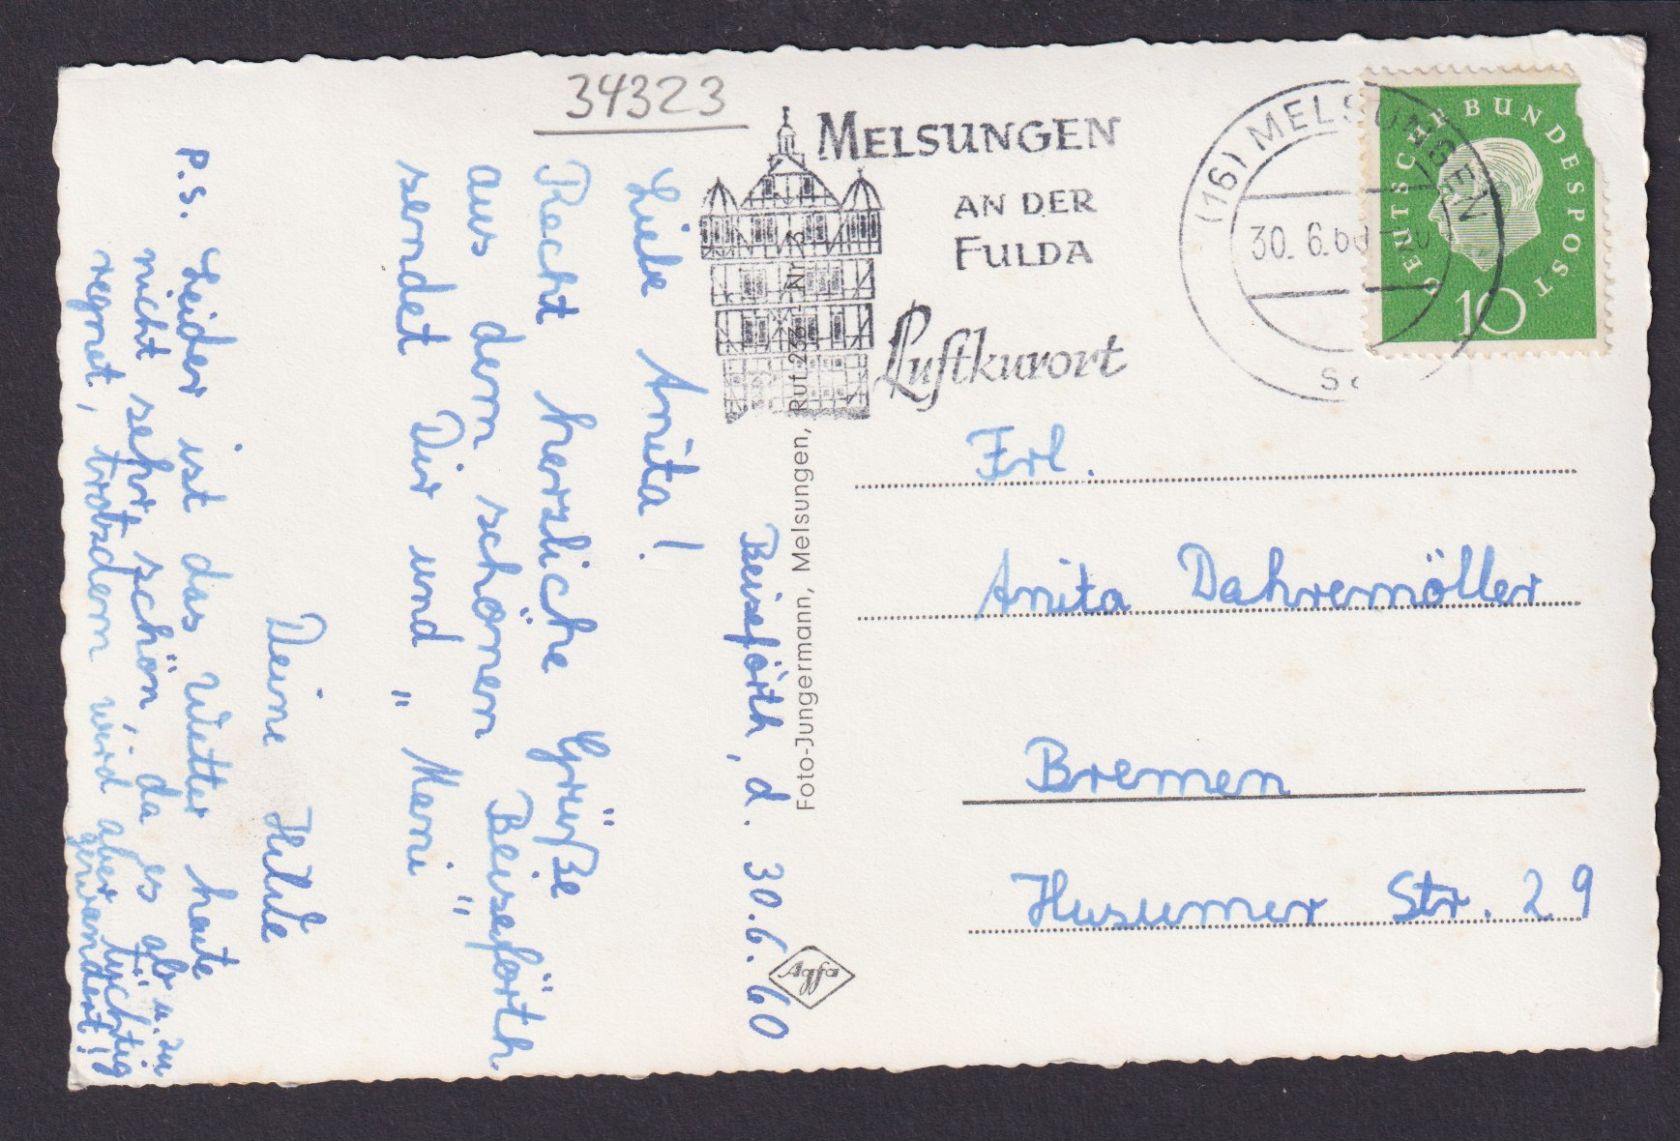 34323
MELSUNGEN
AN DER
FULDA
Luftkurort
(16) MELSUNGEN
30. 6.60
DEUTSCHE BUNDESPOST
10
Beiseförth, d. 30.6.60
Liebe Anita!
Recht herzliche Grüße
aus dem schönen Beiseförth
sendet Dir und „Meni"
Deine Hilde
P.S. Leider ist das Wetter heute
nicht sehr schön, da es ab u. zu
regnet, trotzdem wird aber tüchtig
gewandert!
Foto-Jungermann, Melsungen, Ruf 233 Nr. 3
Agfa
Frl.
Anita Dahremöller
Bremen
Husumer Str. 29